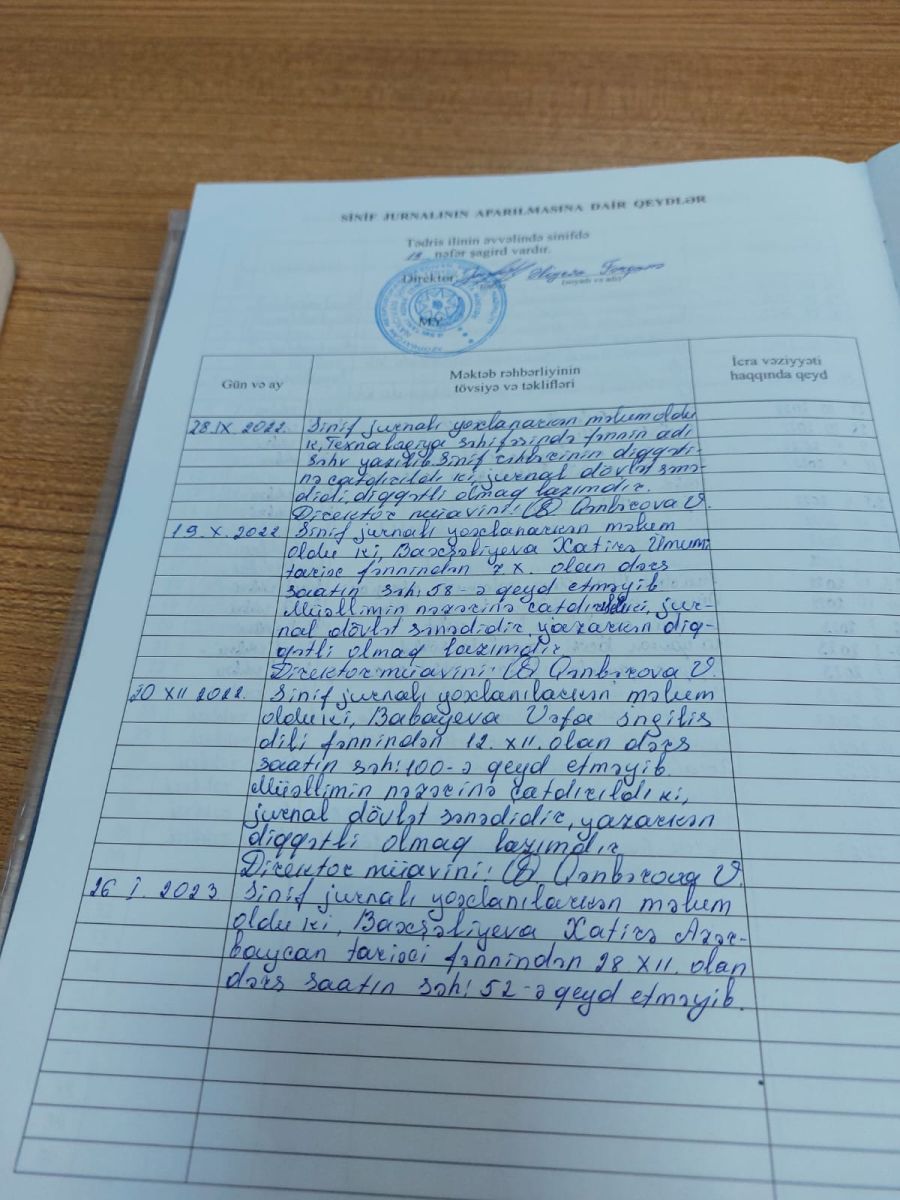 SİNİF JURNALININ APARILMASINA DAİR QEYDLƏR
Tədris ilinin əvvəlində sinifdə
nəfər şagird vardır.
Direktor
(soyadı və adı)
MY
Gün və ay
Məktəb rəhbərliyinin
tövsiyə və təklifləri
İcra vəziyyəti
haqqında qeyd
28.IX 2022. Sinif jurnalı yoxlanarkən məlum oldu
ki, Texnalogiya səhifəsində fənnin adı
səhv yazılıb. Sinif rəhbərinin diqqəti-
nə çatdırıldı ki, jurnal dövlət sənə-
didi, diqqətli olmaq lazımdır.
Direktor müavini: Qənbərova V.
19.X.2022 Sinif jurnalı yoxlanarkən məlum
oldu ki, Baxşəliyeva Xatirə Ümumi
tarix fənnindən 7 X. olan dərs
saatın səh: 58-ə qeyd etməyib
Müəllimin nəzərinə çatdırıldı ki, jur-
nal dövlət sənədidir, yazarkən diq-
qətli olmaq lazımdır.
Direktor müavini: Qənbərova V.
20 XII 2022. Sinif jurnalı yoxlanılarkən məlum
oldu ki, Babayeva Vəfa İngilis
dili fənnindən 12. XII. olan dərs
saatın səh: 100-ə qeyd etməyib.
Müəllimin nəzərinə çatdırıldı ki,
jurnal dövlət sənədidir, yazarkən
diqqətli olmaq lazımdır
Direktor müavini: Qənbərova V.
26 I. 2023 Sinif jurnalı yoxlanılarkən məlum
oldu ki, Baxşəliyeva Xatirə Azər-
baycan tarixi fənnindən 28 XII. olan
dərs saatın səh: 52-ə qeyd etməyib.